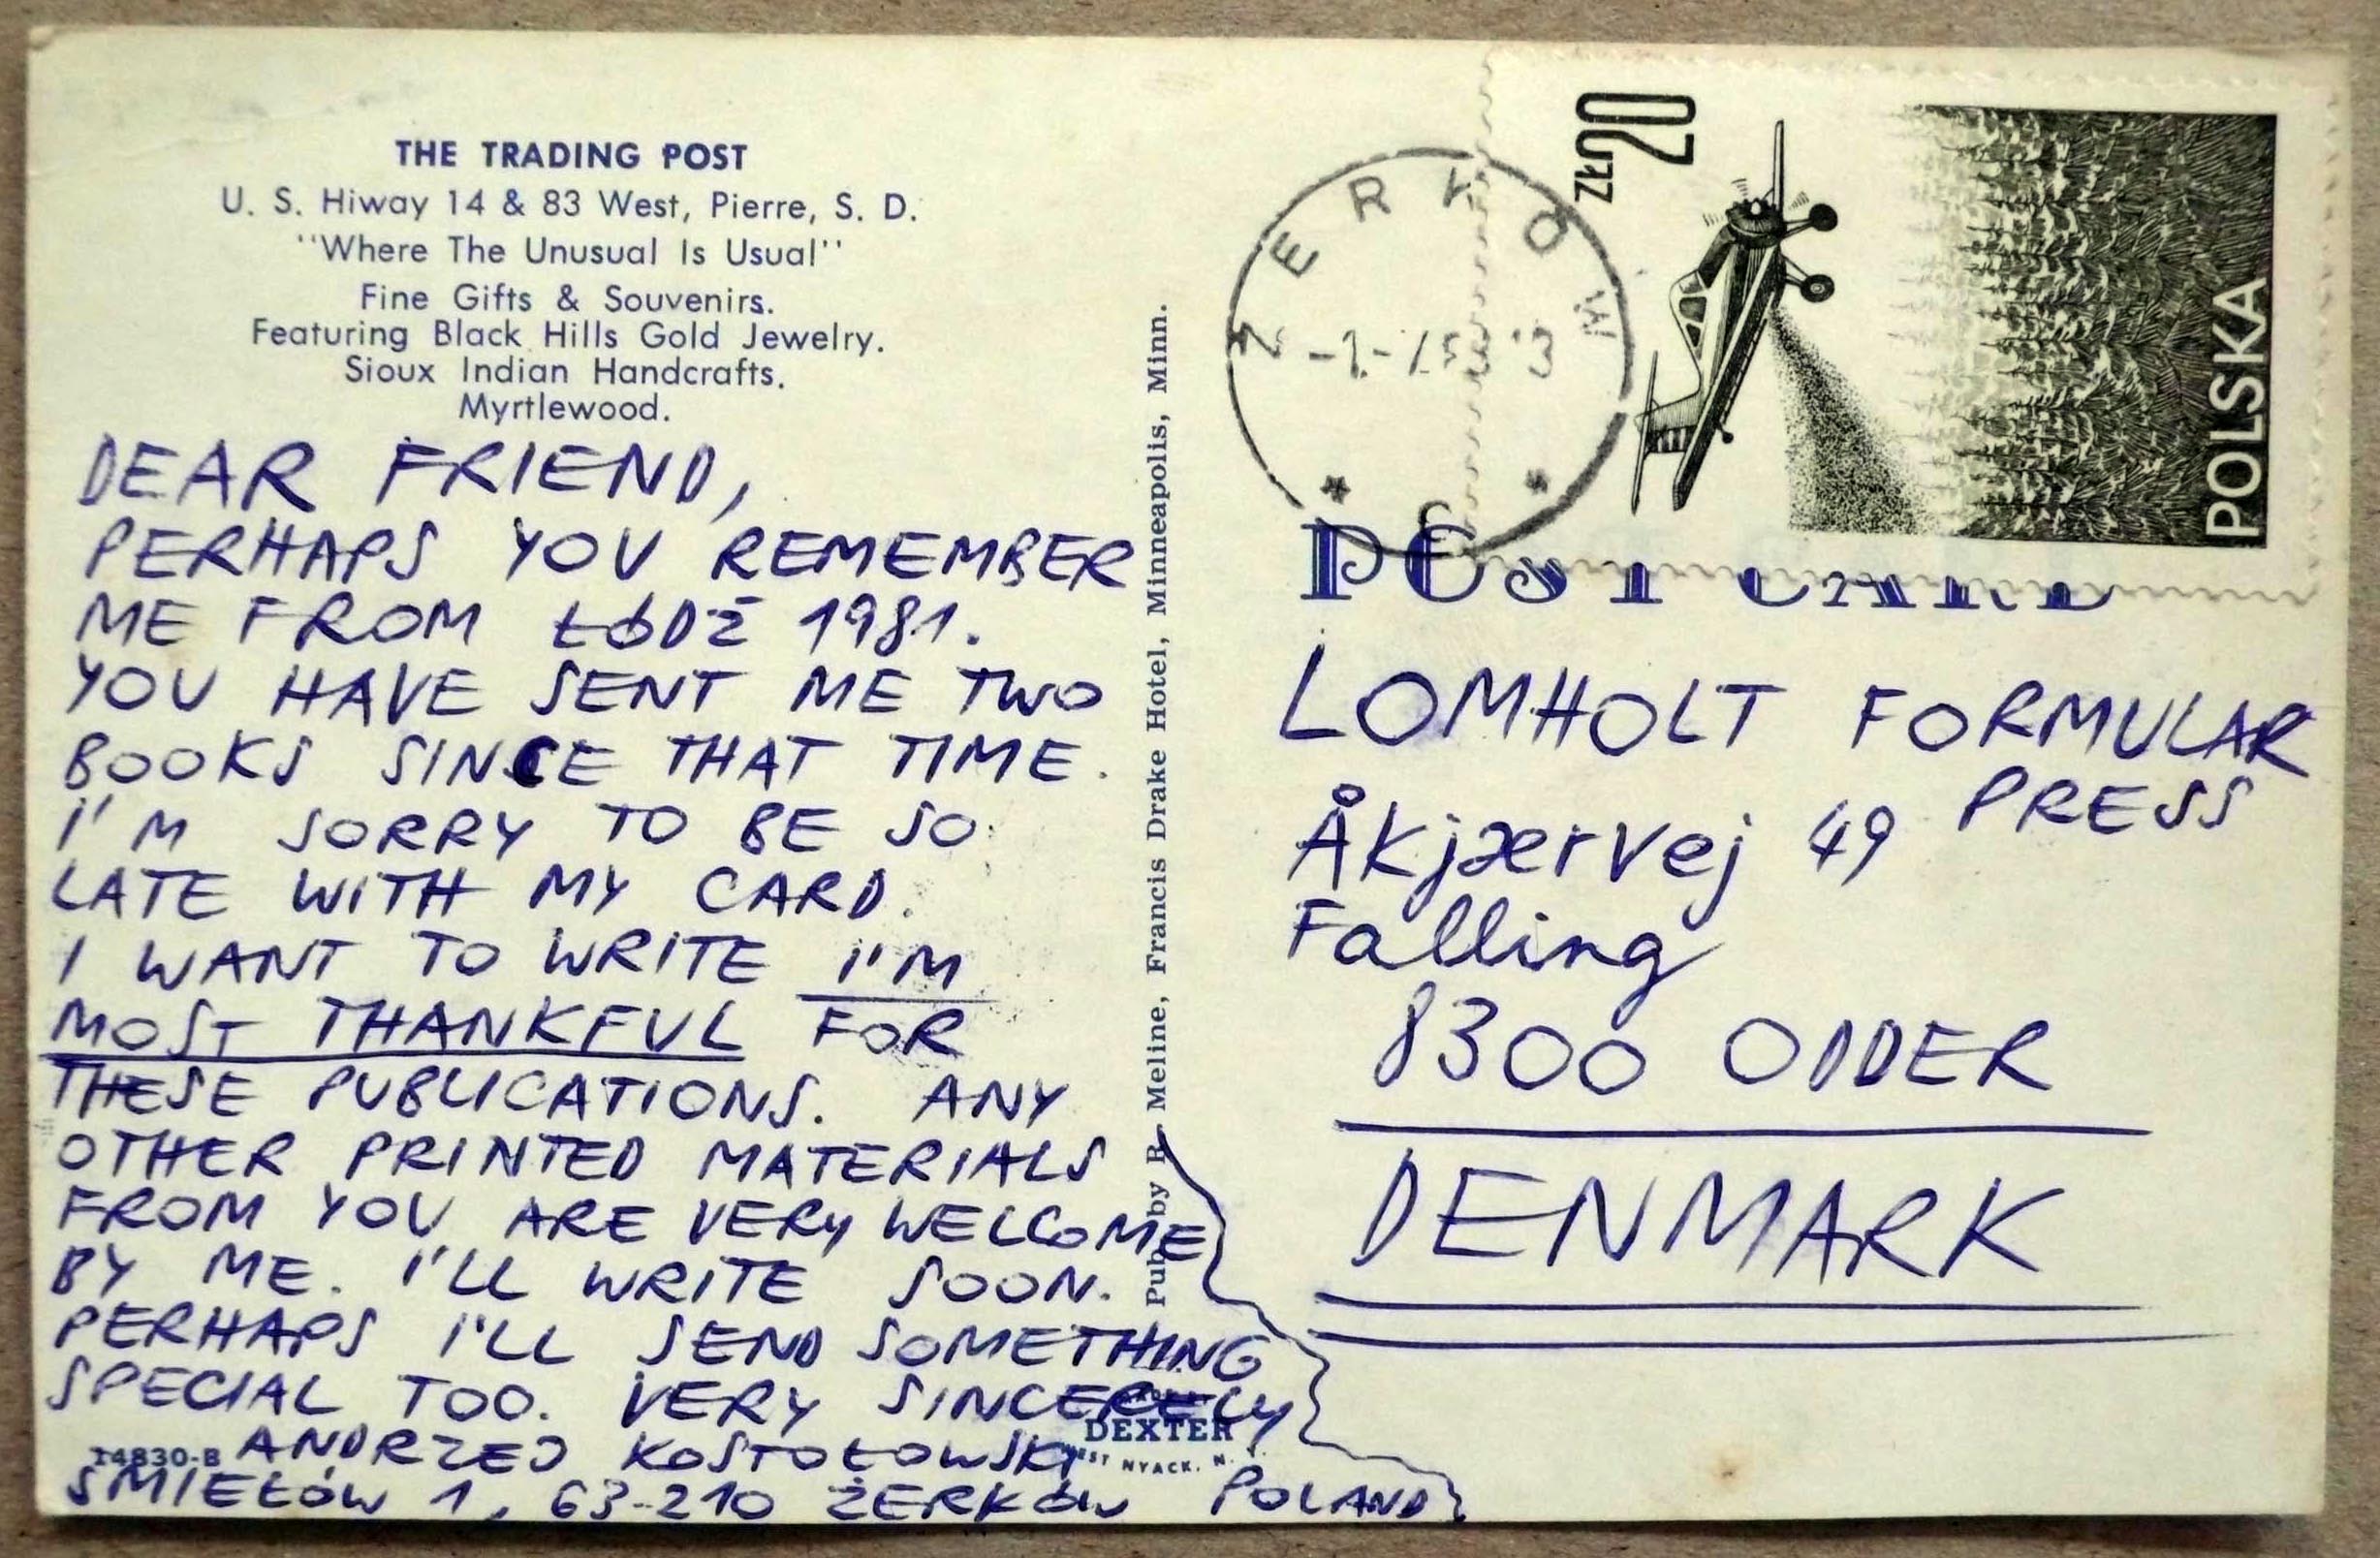 THE TRADING POST
U. S. Hiway 14 & 83 West, Pierre, S. D.
"Where The Unusual Is Usual"
Fine Gifts & Souvenirs.
Featuring Black Hills Gold Jewelry.
Sioux Indian Handcrafts.
Myrtlewood.
DEAR FRIEND,
PERHAPS YOU REMEMBER
ME FROM ŁÓDŹ 1981.
YOU HAVE SENT ME TWO
BOOKS SINCE THAT TIME.
I'M SORRY TO BE SO
LATE WITH MY CARD.
I WANT TO WRITE I'M
MOST THANKFUL FOR
THESE PUBLICATIONS. ANY
OTHER PRINTED MATERIALS
FROM YOU ARE VERY WELCOME
BY ME. I'LL WRITE SOON.
PERHAPS I'LL SEND SOMETHING
SPECIAL TOO. VERY SINCERELY
ANDRZEJ KOSTOŁOWSKI
ŚMIEŁÓW 1, 63-210 ŻERKÓW POLAND
14830-B
DEXTER
WEST NYACK, N.
Pub. by R. Meline, Francis Drake Hotel, Minneapolis, Minn.
ZERKOW
ZŁ 20
POLSKA
POST CARD
LOMHOLT FORMULAR
PRESS
Åkjærvej 49
Falling
8300 ODDER
DENMARK